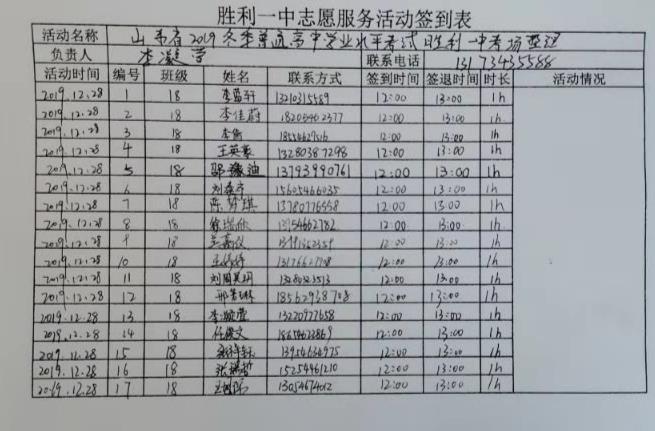 胜利一中志愿服务活动签到表
活动名称 山东省2019冬季普通高中学业水平考试胜利一中考场整理
负责人 李凝萱 联系电话 13173435588
活动时间 编号 班级 姓名 联系方式 签到时间 签退时间 时长 活动情况
2019.12.28 1 18 李蓝轩 13210315589 12:00 13:00 1h
2019.12.28 2 18 李佳蔚 18205462377 12:00 13:00 1h
2019.12.28 3 18 李衡 12:00 13:00 1h
2019.12.28 4 18 王英豪 13280387298 12:00 13:00 1h
2019.12.28 5 18 13793990761 12:00 13:00 1h
2019.12.28 6 18 15605466035 12:00 13:00 1h
2019.12.28 7 18 陈梦琪 13780776558 12:00 13:00 1h
2019.12.28 8 18 12:00 13:00 1h
2019.12.28 9 18 12:00 13:00 1h
2019.12.28 10 18 12:00 13:00 1h
2019.12.28 11 18 12:00 13:00 1h
2019.12.28 12 18 18562938708 12:00 13:00 1h
2019.12.28 13 18 李凝萱 13220977658 12:00 13:00 1h
2019.12.28 14 18 12:00 13:00 1h
2019.12.28 15 18 13954636975 12:00 13:00 1h
2019.12.28 16 18 15254461210 12:00 13:00 1h
2019.12.28 17 18 13054674012 12:00 13:00 1h